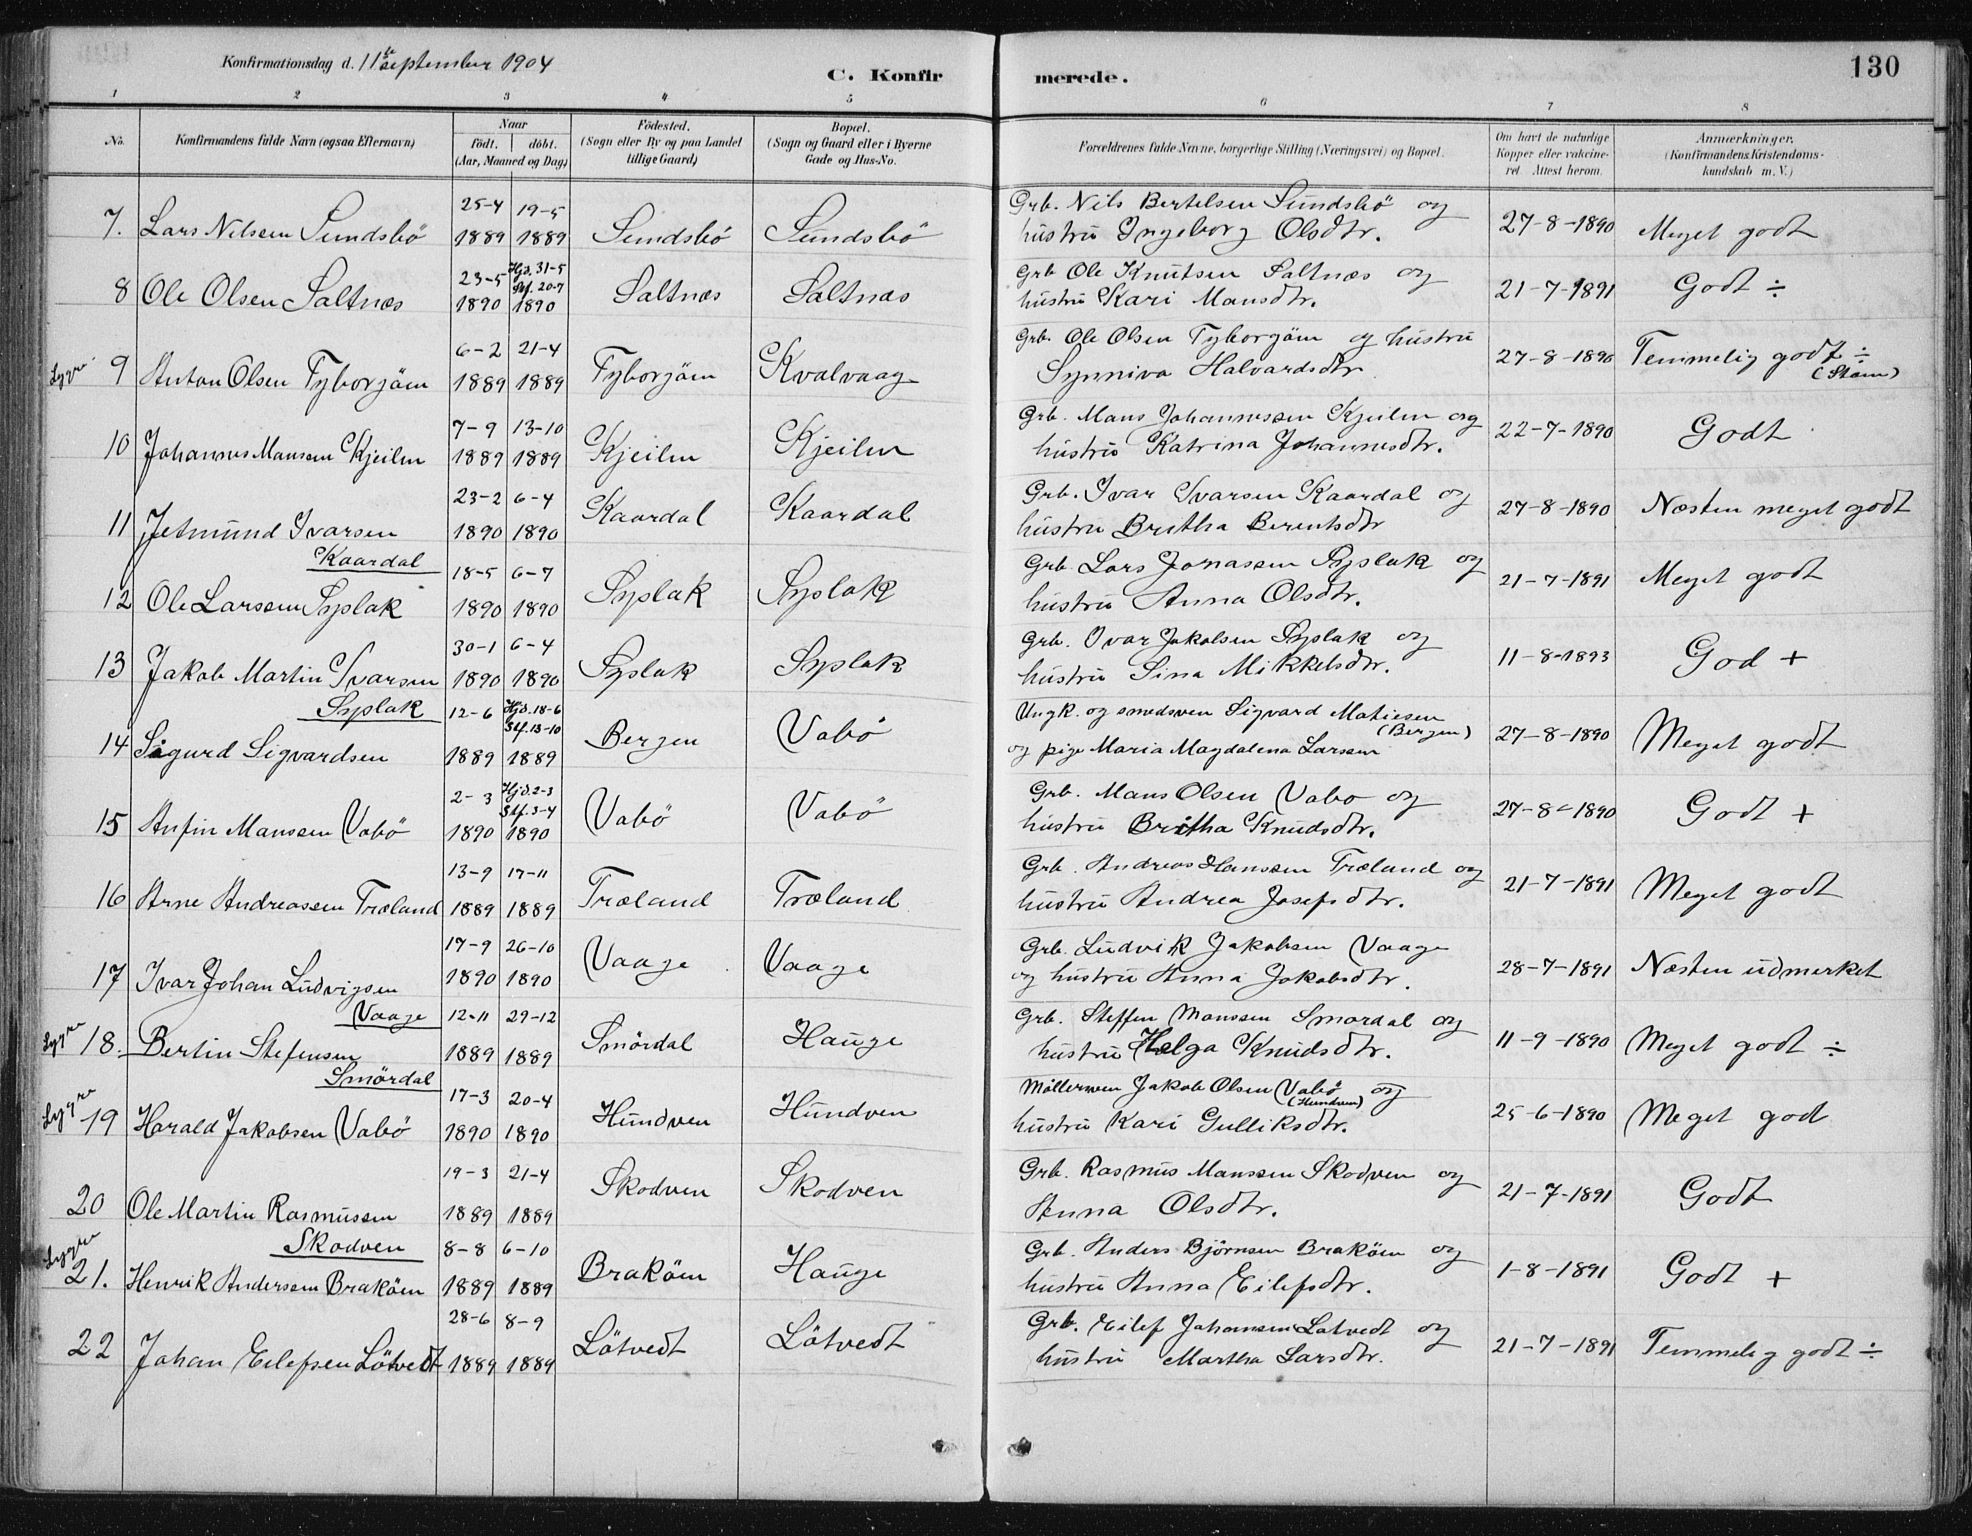 Konfirmationsdag d. 11te September 1904
C. Konfirmerede.
130
1 2 3 4 5 6 7 8
No.
Konfirmandens fulde Navn (ogsaa Efternavn)
Naar
født. døbt.
(Aar, Maaned og Dag)
Fødested.
(Sogn eller By og paa Landet
tillige Gaard)
Bopæl.
(Sogn og Gaard eller i Byerne
Gade og Hus-No.
Forældrenes fulde Navne, borgerlige Stilling (Næringsvei) og Bopæl.
Om havt de naturlige
Kopper eller vakcine-
ret. Attest herom.
Anmærkninger.
(Konfirmandens Kristendoms-
kundskab m. V.)
7. Lars Nilsen Sundsbö 25-4 1889 19-5 1889 Sundsbö Sundsbö
Grb. Nils Bertelsen Sundsbö og
hustru Ingeborg Olsdtr. 27-8-1890 Meget godt
8 Ole Olsen Saltnæs 23-5 1890 Hjd. 31-5 Stf. 20-7 1890 Saltnæs Saltnæs
Grb Ole Knutsen Saltnæs og
hustru Kari Mansdtr. 21-7-1891 Godt ÷
Lygre 9 Anton Olsen Fyborgöm 6-2 1889 21-4 1889 Fyborgöm Kvalvaag
Grb. Ole Olsen Fyborgöm og hustru
Synniva Halvardsdtr 27-8-1890 Temmelig godt ÷
(Stam)
10 Johannes Mansen Kjeilen 7-9 1889 13-10 1889 Kjeilen Kjeilen
Grb. Mans Johannessen Kjeilen og
hustru Katrina Johannesdtr. 22-7-1890 Godt
11 Jetmund Ivarsen
Kaardal 23-2 1890 6-4 1890 Kaardal Kaardal
Grb. Ivar Ivarsen Kaardal og
hustru Britha Berentsdtr 27-8-1890 Næsten meget godt
12 Ole Larssen Syslak 18-5 1890 6-7 1890 Syslak Syslak
Grb. Lars Jonassen Syslak og
hustru Anna Olsdtr. 21-7-1891 Meget godt
13 Jakob Martin Ivarsen
Syslak 30-1 1890 6-4 1890 Syslak Syslak
Grb. Ivar Jakobsen Syslak og
hustru Sina Mikkelsdtr. 11-8-1893 God +
14 Sigurd Sigvardsen 12-6 1889 Hjd. 18-6 Stf. 13-10 1889 Bergen Vabö
Ungk. og smedsven Sigvard Matiesen
(Bergen)
og pige Maria Magdalena Larsen 27-8-1890 Meget godt
15 Anfin Manssen Vabö 2-3 1890 Hjd. 2-3 Stf. 3-4 1890 Vabö Vabö
Grb. Mans Olsen Vabo og
hustru Britha Knudsdtr. 27-8-1890 Godt +
16 Arne Andreassen Træland 13-9 1889 17-11 1889 Træland Træland
Grb. Andreas Hanssen Træland og
hustru Andrea Josefsdtr. 21-7-1891 Meget godt
17 Ivar Johan Ludvigsen
Vaage 17-9 1890 26-10 1890 Vaage Vaage
Grb. Ludvik Jakobsen Vaage
og hustru Anna Jakobsdtr. 28-7-1891 Næsten udmerket
Lygre 18. Bertin Stefensen
Smördal 12-11 1889 29-12 1889 Smördal Hauge
Grb. Steffen Monssen Smordal og
hustru Helga Knudsdtr. 11-9-1890 Meget godt ÷
Lygre 19 Harald Jakobsen Vabö 17-3 1890 20-4 1890 Hundven Hundven
Möllersven Jakob Olsen Vabö og
(Hundven)
hustru Kari Gulliksdtr. 25-6-1890 Meget god
20 Ole Martin Rasmussen
Skodven 19-3 1889 21-4 1889 Skodven Skodven
Grb. Rasmus Manssen Skodven og
Anna Olsdtr. 21-7-1891 Godt
Lygre 21. Henrik Anderssen Braköm 8-8 1889 6-10 1889 Braköm Hauge
Grb. Anders Björnsen Braköm og
hustru Anna Eilefsdtr. 1-8-1891 Godt +
22 Johan Eilefsen Lötvedt 28-6 1889 8-9 1889 Lötvedt Lötvedt
Grb. Eilef Johansen Lötvedt og
hustru Martha Larsdtr. 21-7-1891 Temmelig godt ÷